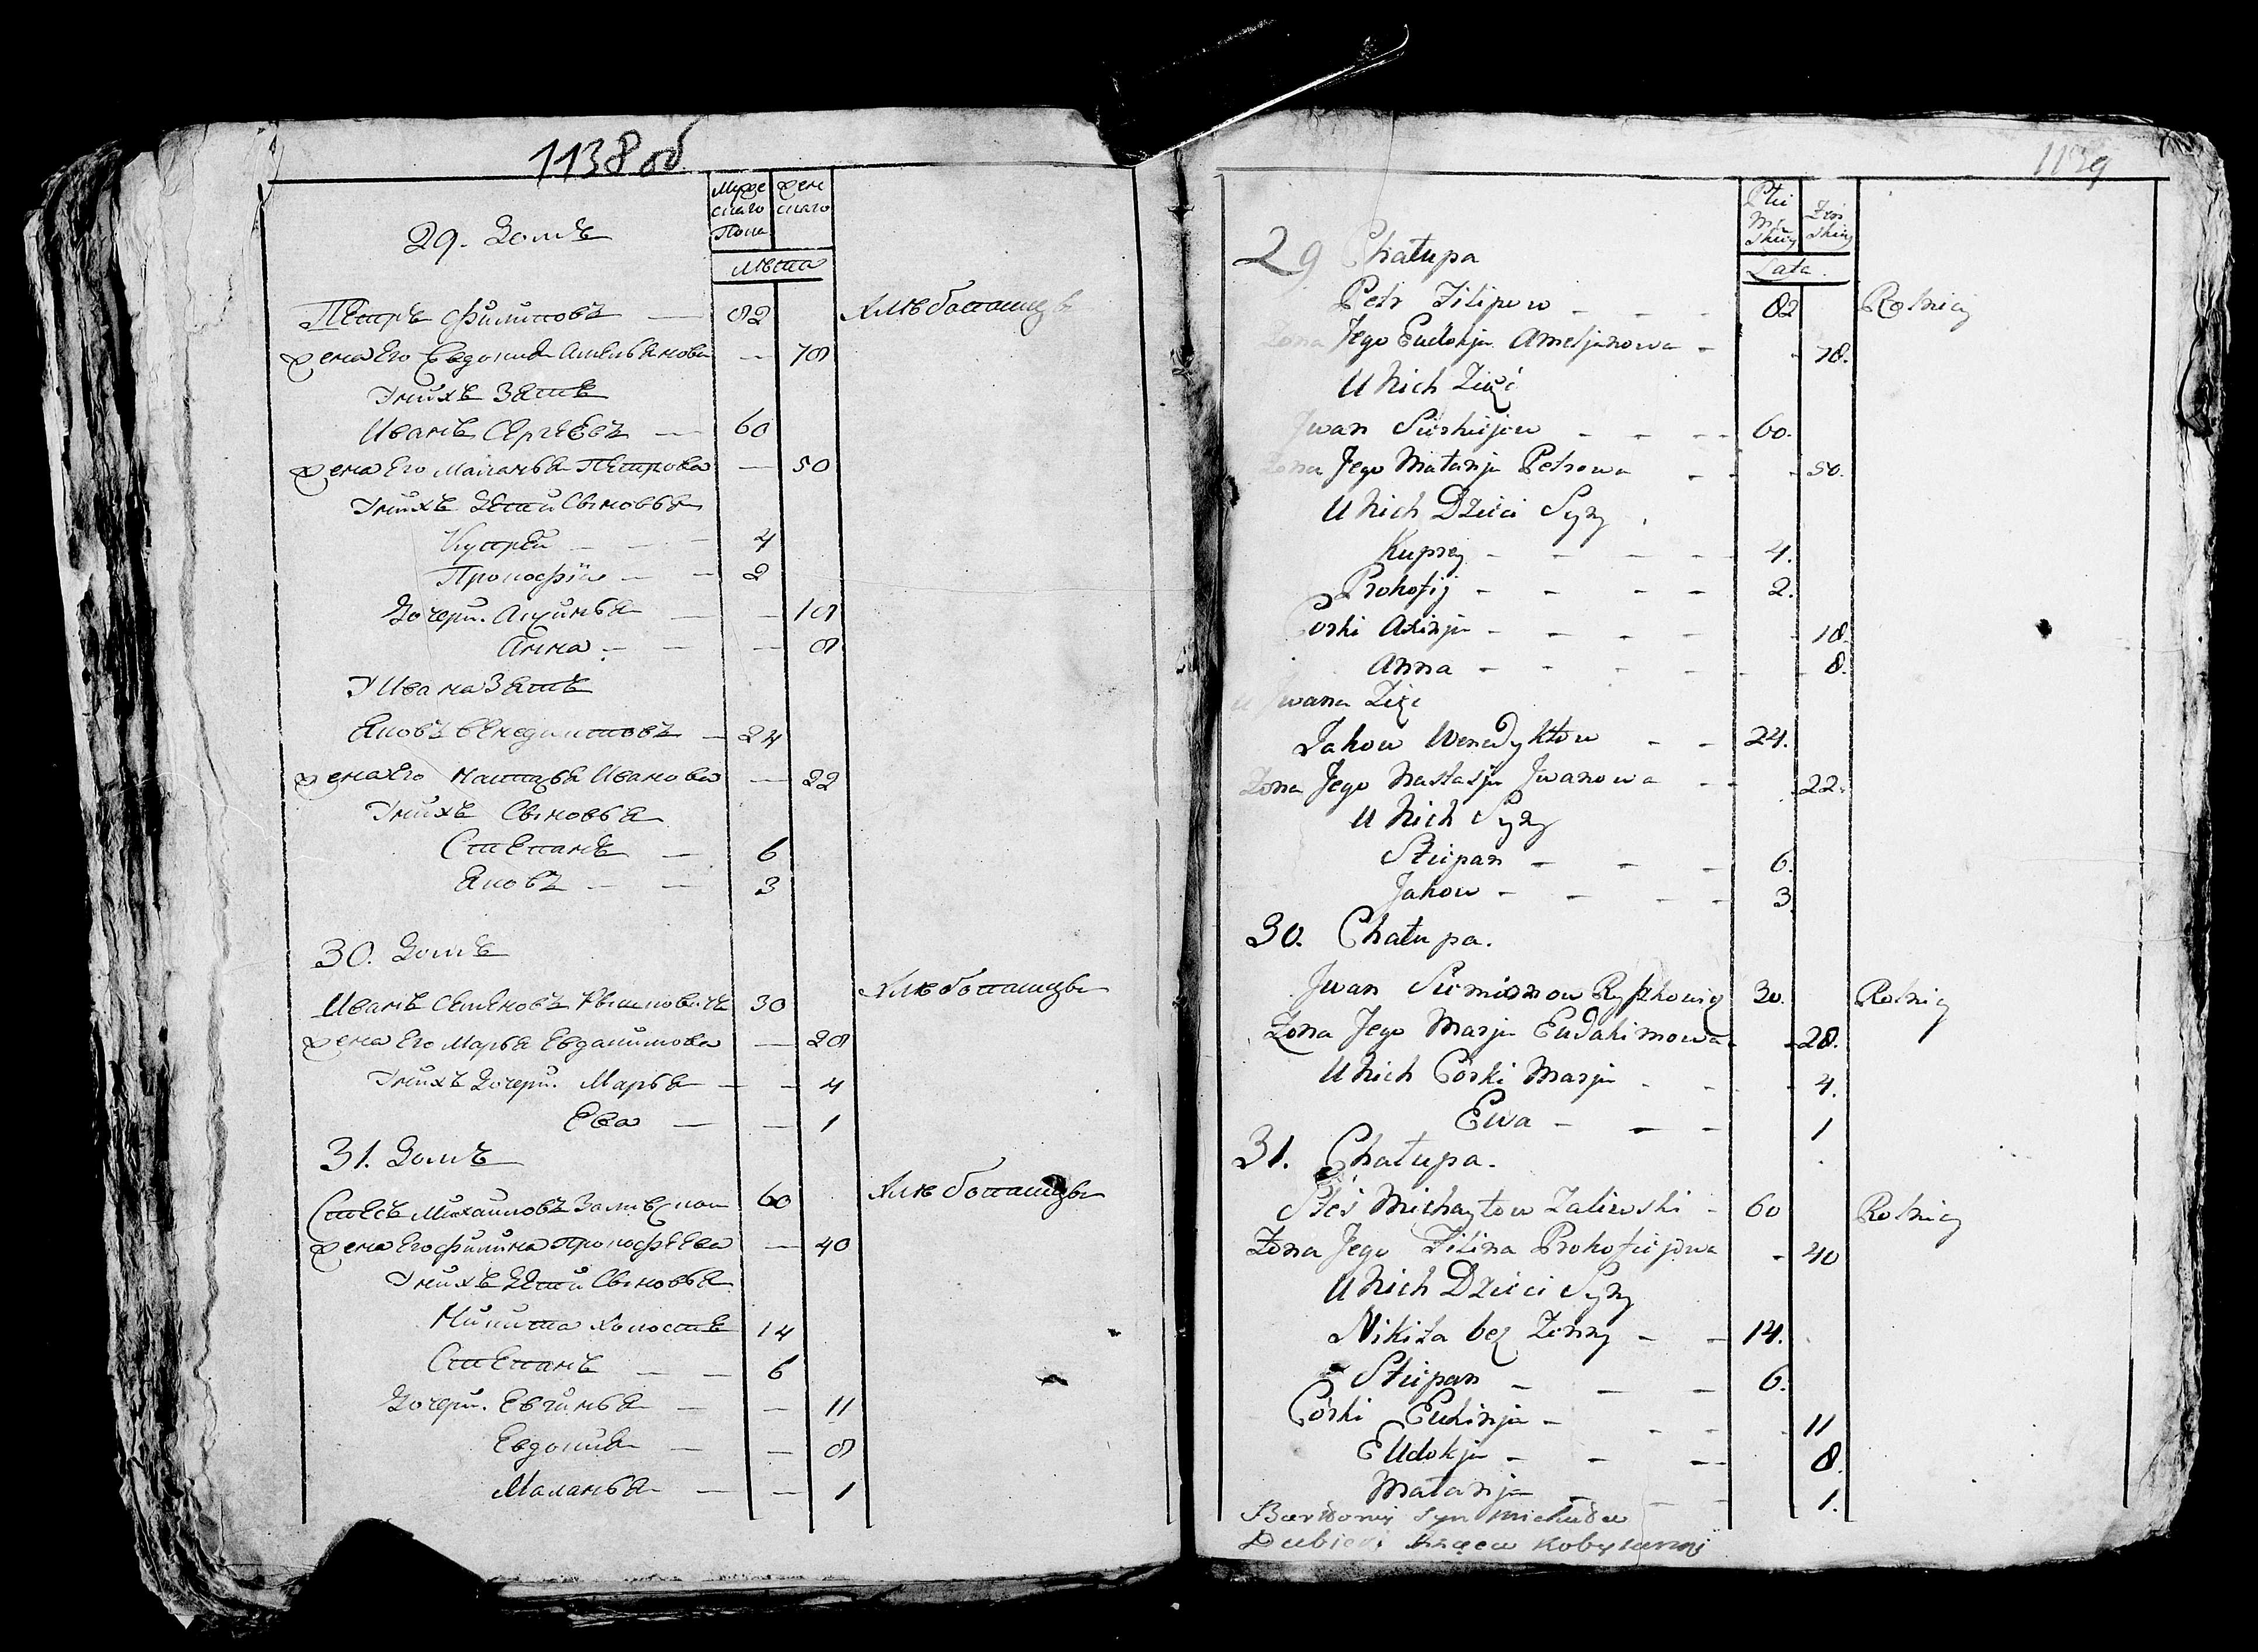 1138 об
Мужескаго Пола
Женскаго
Лѣта
29. Домъ
Петръ Филиповъ — 82 Хлѣбопашцы
Жена Его Евдокия Амельянова — 78
У нихъ Зять
Иванъ Сергеевъ — 60
Жена Его Маланья Петрова — 50
У нихъ Дети Сыновья
Купрей — — — 4
Прокофій — — 2
Дочери. Аксинья — — 18
Анна — — — 8
У Ивана Зять
Яковъ Венедиктовъ — 24
Жена Его Настасья Иванова — 22
У нихъ Сыновья
Степанъ — 6
Яковъ — — 3
30. Домъ
Иванъ Семяновъ Рышковичъ 30 Хлѣбопашцы
Жена Его Марья Евдакимова — 28
У нихъ Дочери. Марья — — 4
Ева — — 1
31. Домъ
Стесь Михаиловъ Залѣскои 60 Хлѣбопашцы
Жена Его Филина Прокофеева — 40
У нихъ Дети Сыновья
Микита холостъ 14
Степанъ — — 6
Дочери. Евгинья — — 11
Евдокия — — 8
Маланья — — 1
1139
Płci Męskiey
Żeńskiey
Lata.
29 Chałupa
Petr Filipow - - - 82 Rolnicy
Zona Jego Eudokja Ameljanowa - - 78.
U Nich Zięć
Jwan Sierhiejew - - - - 60.
Zona Jego Małanja Petrowa - - - 50.
U Nich Dzieci Syny
Kuprey - - - - - 4.
Prokofij - - - - 2.
Corki Axinja - - - - - 18.
Anna - - - - - - 8.
U Jwana Zięć
Jakow Wenedyktow - - 24.
Zona Jego Nastasja Jwanowa - - 22.
U Nich Syny
Stiepan - - - 6.
Jakow - - - - 3.
30. Chałupa.
Jwan Siemionow Ryszkowicz 30. Rolnicy
Zona Jego Marja Eudakimowa - - 28.
U Nich Córki Marja - - - 4.
Ewa - - - 1
31. Chałupa.
Steś Michayłow Zaliewski - 60 Rolnicy
Zona Jego Filina Prokofiejowa - 40
U Nich Dzieci Syny
Nikita bez Zonny - - 14.
Stiepan - - - 6.
Córki Euhinja - - - - 11
Eudokja - - - - 8.
Małanja - - - 1.
syn